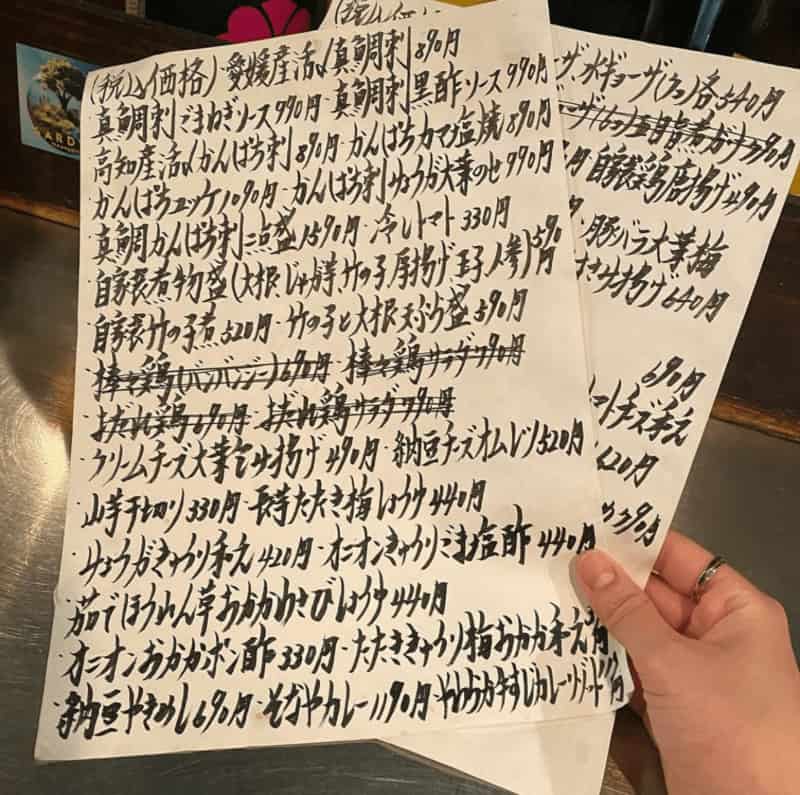 (税込価格)・愛媛産活〆真鯛刺890円
・真鯛刺ごまねぎソース990円・真鯛刺黒酢ソース990円
・高知産活〆かんぱち刺890円・かんぱちカマ塩焼890円
・かんぱちユッケ1090円・かんぱち刺みょうが大葉のせ990円
・真鯛かんぱち刺二点盛1590円・冷しトマト330円
・自家製煮物盛(大根じゃが芋竹の子厚揚げ玉子人参)590円
・自家製竹の子煮520円・竹の子と大根天ぷら盛590円
・棒々鶏(バンバンジー)690円・棒々鶏サラダ790円
・よだれ鶏690円・よだれ鶏サラダ790円
・クリームチーズ大葉包み揚げ490円・納豆チーズオムレツ520円
・山芋千切り330円・長芋たたき梅しょうゆ440円
・みょうがきゅうり和え420円・オニオンきゅうりごま塩酢440円
・茹でほうれん草おかかわさびしょうゆ440円
・オニオンおかかポン酢330円・たたききゅうり梅おかか和え
・納豆やきめし690円・そなやカレー1190円・やわらか牛すじカレー
(税込価格)
水ギョーザ(5コ)各540円
自家製鶏唐揚げ490円
豚バラ大葉梅
揚げ640円
690円
トマトチーズ和え
620円
790円